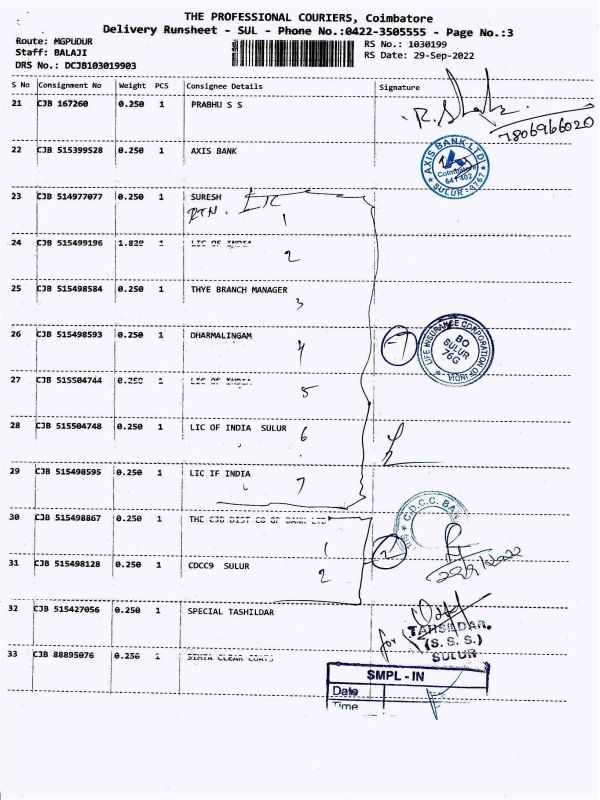 THE PROFESSIONAL COURIERS, Coimbatore
Delivery Runsheet - SUL - Phone No.:0422-3505555 - Page No.:3
Route: MGPUDUR
Staff: BALAJI
DRS No.: DCJB103019903
RS No.: 1030199
RS Date: 29-Sep-2022
S No Consignment No Weight PCS Consignee Details Signature
21 CJB 167260 0.250 1 PRABHU S S
7806966020
22 CJB 515399528 0.250 1 AXIS BANK
AXIS BANK LTD
Coimbatore
641 402
SULUR - 4767
23 CJB 514977077 0.250 1 SURESH
1
24 CJB 515499196 1.820 1 LIC OF INDIA
2
25 CJB 515498584 0.250 1 THYE BRANCH MANAGER
3
26 CJB 515498593 0.250 1 DHARMALINGAM
4
7
LIFE INSURANCE CORPORATION OF INDIA
BO
SULUR
76G
27 CJB 515504744 0.250 1 LIC OF INDIA
5
28 CJB 515504748 0.250 1 LIC OF INDIA SULUR
6
29 CJB 515498595 0.250 1 LIC IF INDIA
7
30 CJB 515498867 0.250 1 THE CJB DIST CO OF BANK LTD
1
2
C.D.C.C. BAN
29/9/2022
31 CJB 515498128 0.250 1 CDCC9 SULUR
2
32 CJB 515427056 0.250 1 SPECIAL TASHILDAR
for
TAHSILDAR,
(S. S. S.)
SULUR
33 CJB 88895076 0.250 1 CLEAR COATS
SMPL - IN
Date
Time